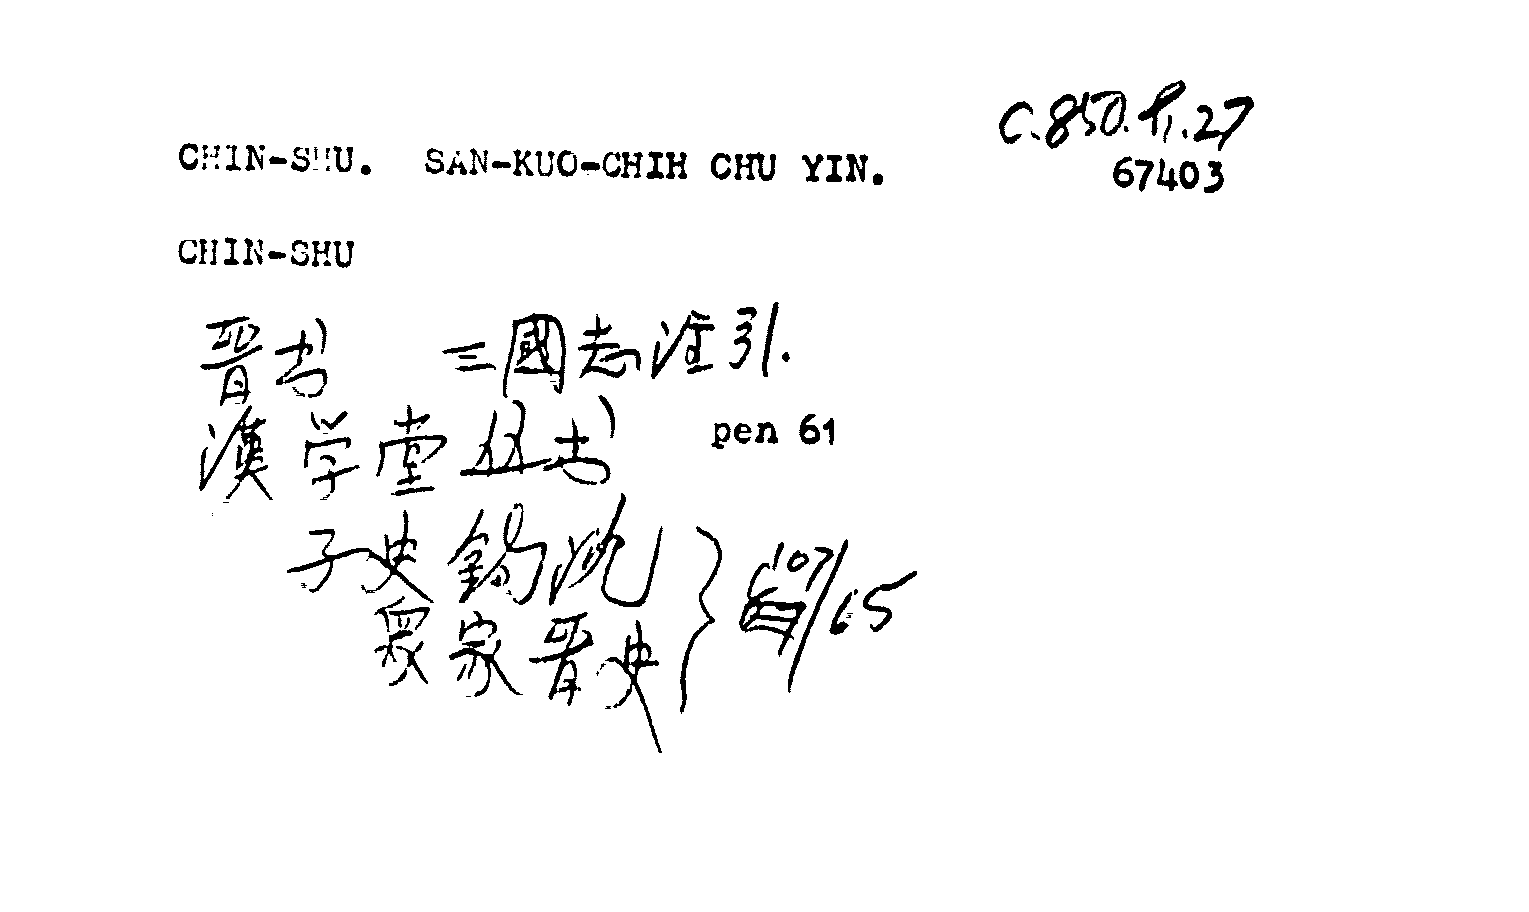 C.850.p1.27
CHIN-SHU. SAN-KUO-CHIH CHU YIN.
67403
CHIN-SHU
晋书 三國志注引.
漢学堂丛书 pen 61
子史鈎沈
眾家晋史
107/65